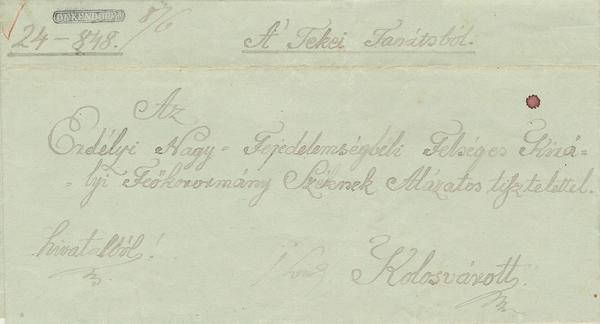 DEKENDORF
8/6
24 - 848.
A' Tekei Tanátsból.
Az
Erdélyi Nagy = Fejedelemségbéli Felséges Kirá=
=lyi Főkormány Széknek Alázatos tisztelettel.
hivatalból!
Kolosvárott.